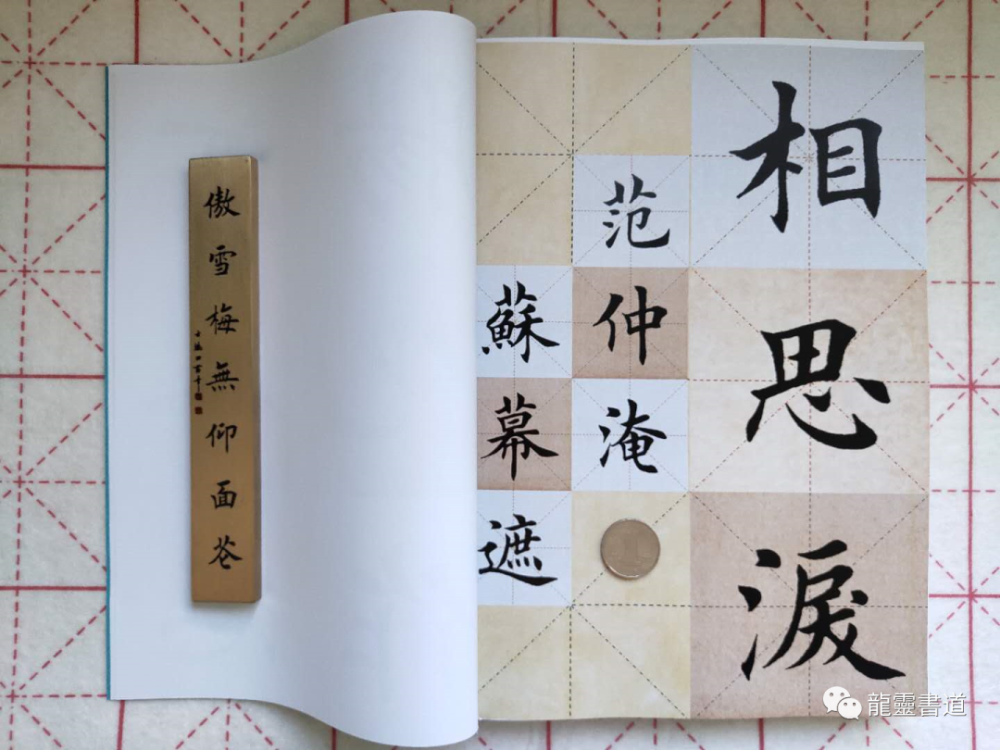 相思淚
范仲淹
蘇幕遮
傲雪梅無仰面花
龍靈書道